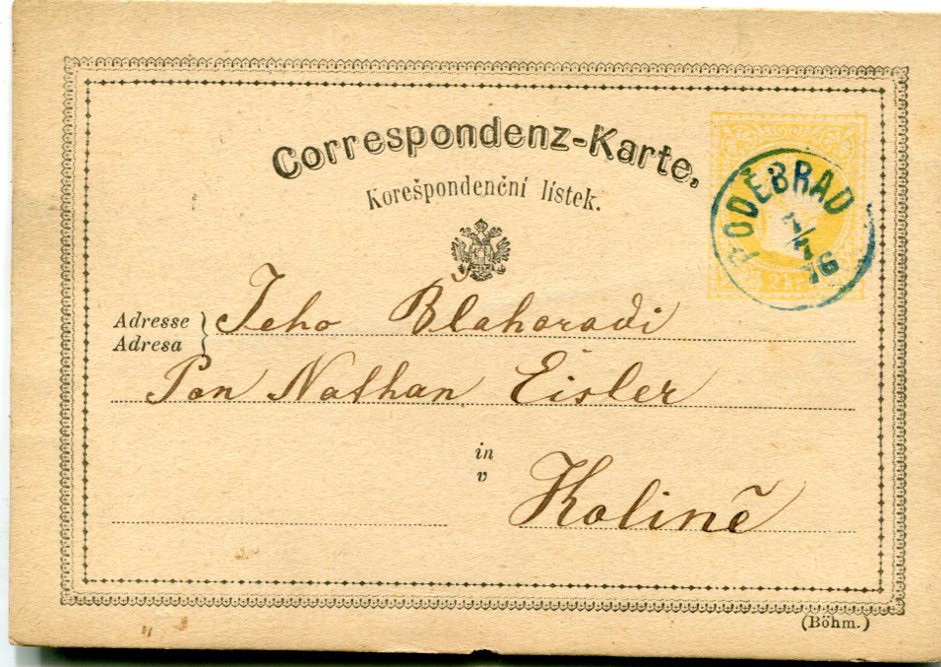 Correspondenz-Karte.
Korešpondenční lístek.
PODĚBRAD
76
2 Kr.
Adresse
Adresa
Jeho Blahorodi
Pan Nathan Eisler
in
v
Kolině
(Böhm.)